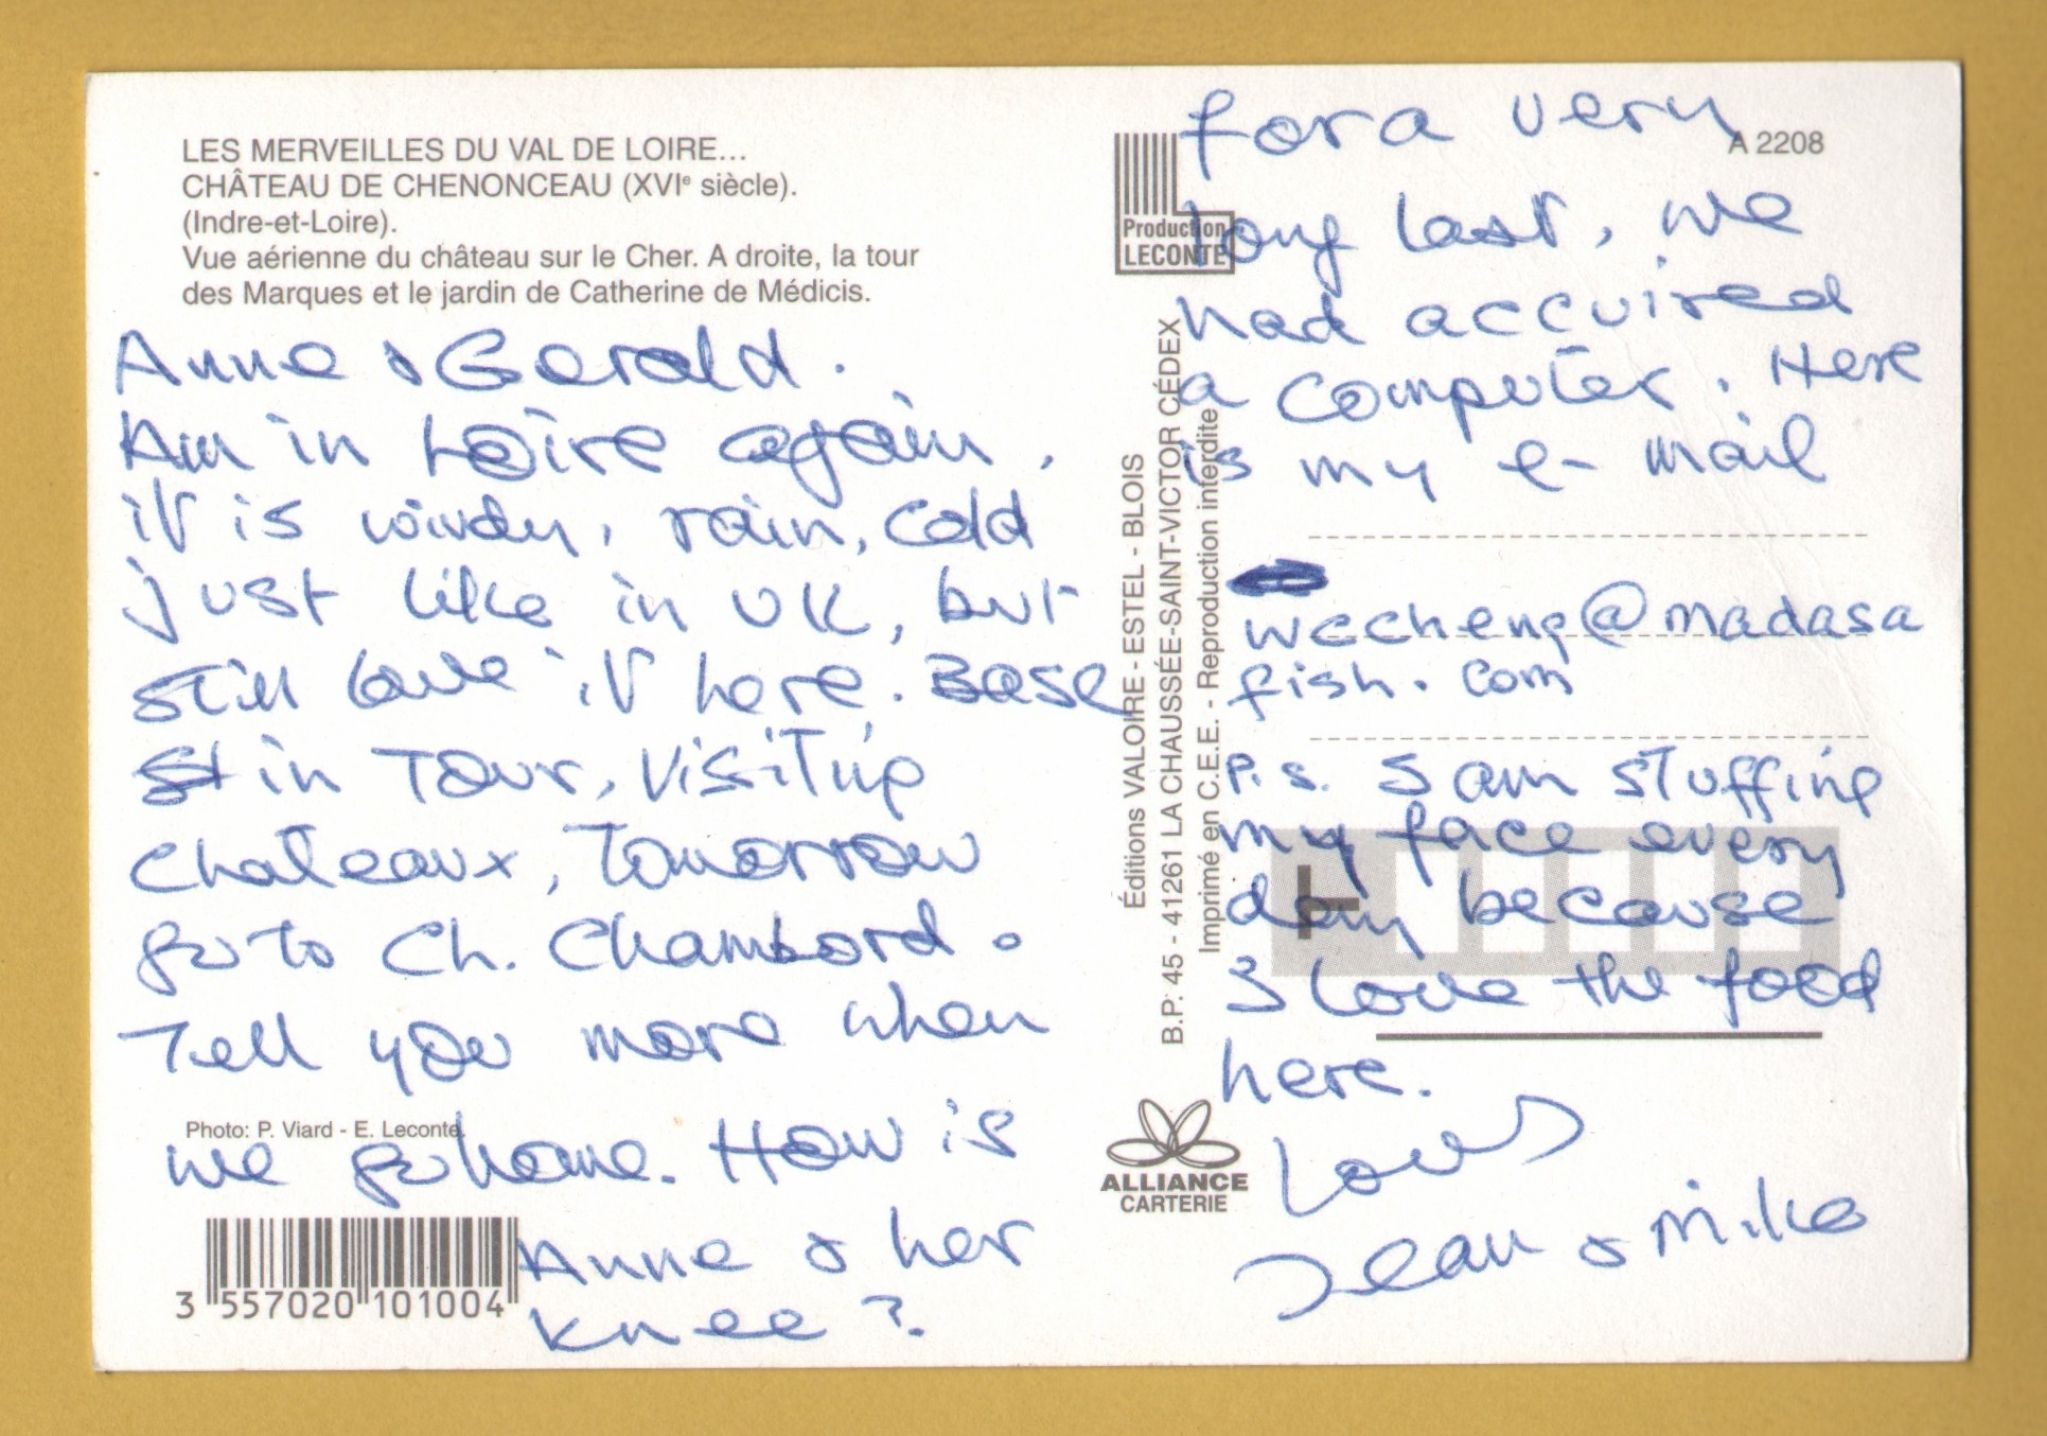 LES MERVEILLES DU VAL DE LOIRE...
CHÂTEAU DE CHENONCEAU (XVIe siècle).
(Indre-et-Loire).
Vue aérienne du château sur le Cher. A droite, la tour
des Marques et le jardin de Catherine de Médicis.
Anne & Gerald.
Am in Loire again,
it is windy, rain, cold
just like in UK, but
still love it here. Base
in Tour, visiting
Chateaux, Tomorrow
go to Ch. Chambord.
Tell you more when
Photo: P. Viard - E. Leconte
we go home. How is
Anne & her
knee?
3 557020 101004
Production
LECONTE
A 2208
Éditions VALOIRE - ESTEL - BLOIS
B.P. 45 - 41261 LA CHAUSSÉE-SAINT-VICTOR CÉDEX
Imprimé en C.E.E. - Reproduction interdite
ALLIANCE
CARTERIE
for a very
long last, we
had accuired
a computer. Here
is my e-mail
wccheng@madasa
fish.com
P.S. I am stuffing
my face every
day because
I love the food
here.
Love
Jean & Mike